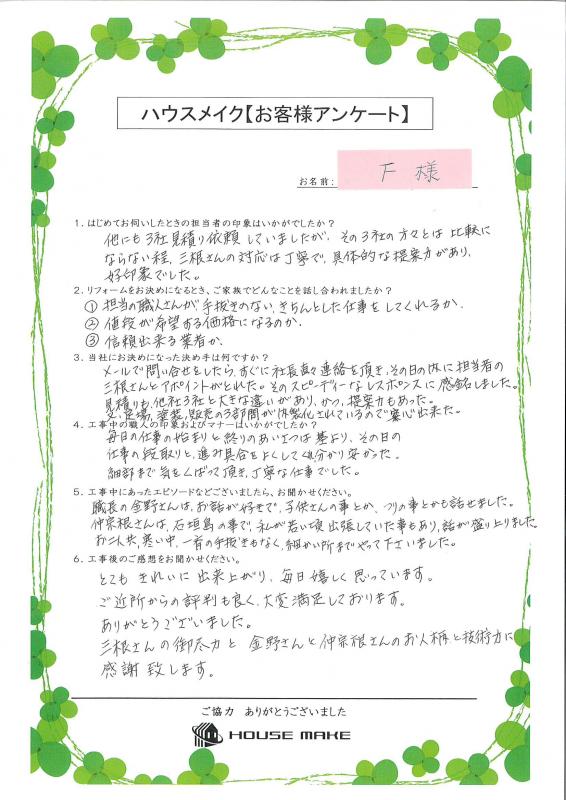 ハウスメイク【お客様アンケート】
お名前: F 様
1. はじめてお伺いしたときの担当者の印象はいかがでしたか?
他にも3社見積り依頼していましたが、その3社の方々とは比較に
ならない程、三根さんの対応は丁寧で、具体的な提案力があり、
好印象でした。
2. リフォームをお決めになるとき、ご家族でどんなことを話し合われましたか?
① 担当の職人さんが、手抜きのない、きちんとした仕事をしてくれるか。
② 値段が希望する価格になるのか。
③ 信頼出来る業者か。
3. 当社にお決めになった決め手は何ですか?
メールで問い合せをしたら、すぐに社長直々連絡を頂き、その日の内に担当者の
三根さんとアポイントがとれた。そのスピーディーなレスポンスに感銘しました。
見積りも、他社3社と大きな違いがあり、かつ、提案力もあった。
又、足場、塗装、販売の3部門が体制化されているので安心出来た。
4. 工事中の職人の印象およびマナーはいかがでしたか?
毎日の仕事の始まりと終りのあいさつは基より、その日の
仕事の段取りと、進み具合をよくしてくれ分かり安かった。
細部まで気をくばって頂き、丁寧な仕事でした。
5. 工事中にあったエピソードなどございましたら、お聞かせください。
職長の金野さんは、お話が好きで、子供さんの事とか、つりの事とかも話せました。
仲宗根さんは、石垣島の事で、私が若い頃出張していた事もあり、話が盛り上りました。
お二人共、寒い中、一省の手抜きもなく、細かい所までやって下さいました。
6. 工事後のご感想をお聞かせください。
とても きれいに 出来上がり、毎日嬉しく思っています。
ご近所からの評判も良く、大変満足しております。
ありがとうございました。
三根さんの御尽力と 金野さんと仲宗根さんのお人柄と技術力に
感謝致します。
ご協力 ありがとうございました
HOUSE MAKE